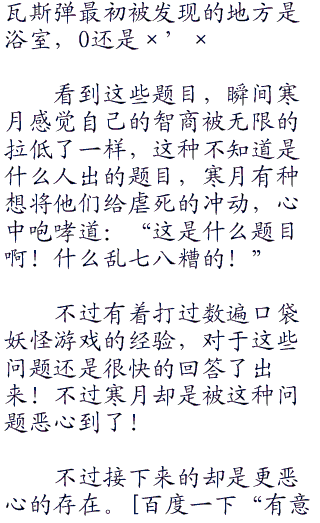 瓦斯弹最初被发现的地方是
浴室，O还是×’×
看到这些题目，瞬间寒
月感觉自己的智商被无限的
拉低了一样，这种不知道是
什么人出的题目，寒月有种
想将他们给虐死的冲动，心
中咆哮道：“这是什么题目
啊！什么乱七八糟的！”
不过有着打过数遍口袋
妖怪游戏的经验，对于这些
问题还是很快的回答了出
来！不过寒月却是被这种问
题恶心到了！
不过接下来的却是更恶
心的存在。[百度一下“有意